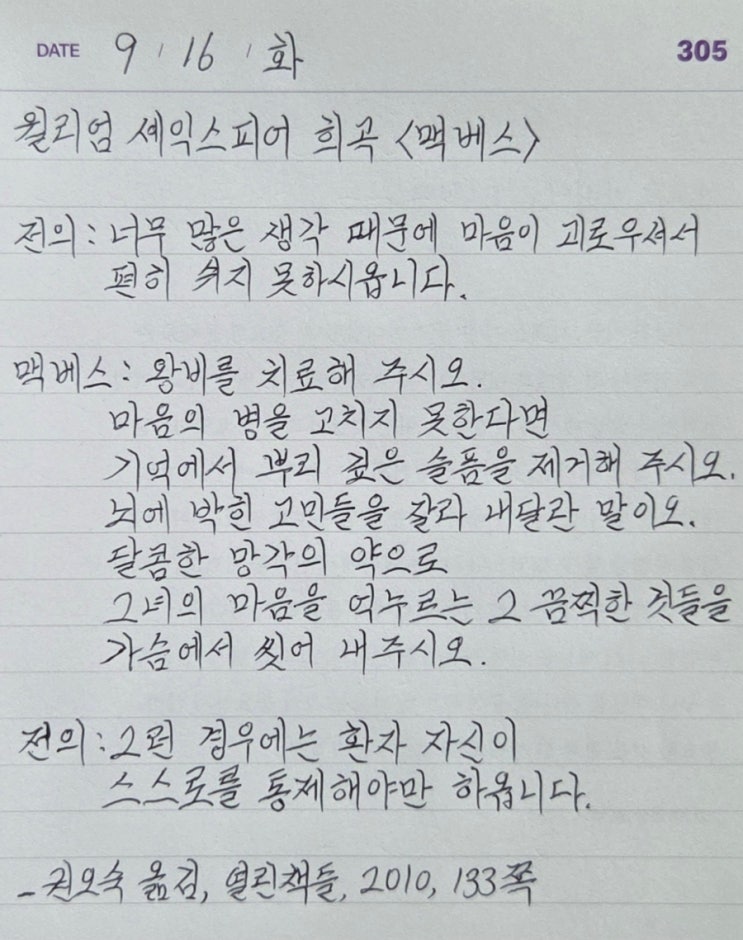 DATE 9 / 16 / 화 305
윌리엄 셰익스피어 희곡 <맥베스>
전의: 너무 많은 생각 때문에 마음이 괴로우셔서
편히 쉬지 못하시옵니다.
맥베스: 왕비를 치료해 주시오.
마음의 병을 고치지 못한다면
기억에서 뿌리 깊은 슬픔을 제거해 주시오.
뇌에 박힌 고민들을 잘라 내달란 말이오.
달콤한 망각의 약으로
그녀의 마음을 억누르는 그 끔찍한 것들을
가슴에서 씻어 내주시오.
전의: 그런 경우에는 환자 자신이
스스로를 통제해야만 하옵니다.
- 권오숙 옮김, 열린책들, 2010, 133쪽